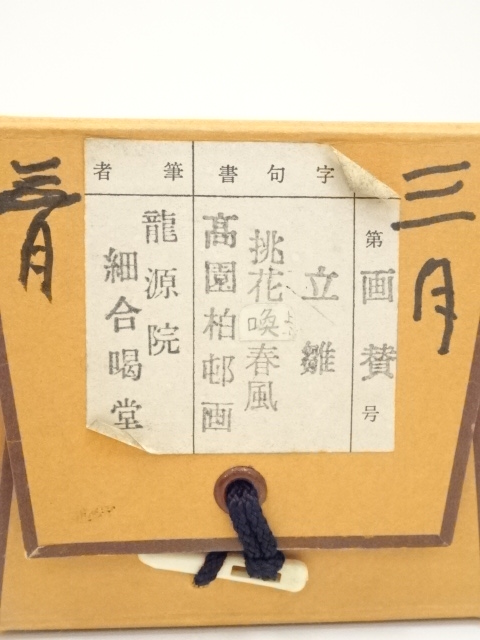 三月
第画賛号
字句書
立雛
挑花喚春風
髙園柏邨画
筆者
龍源院
細合喝堂
三月